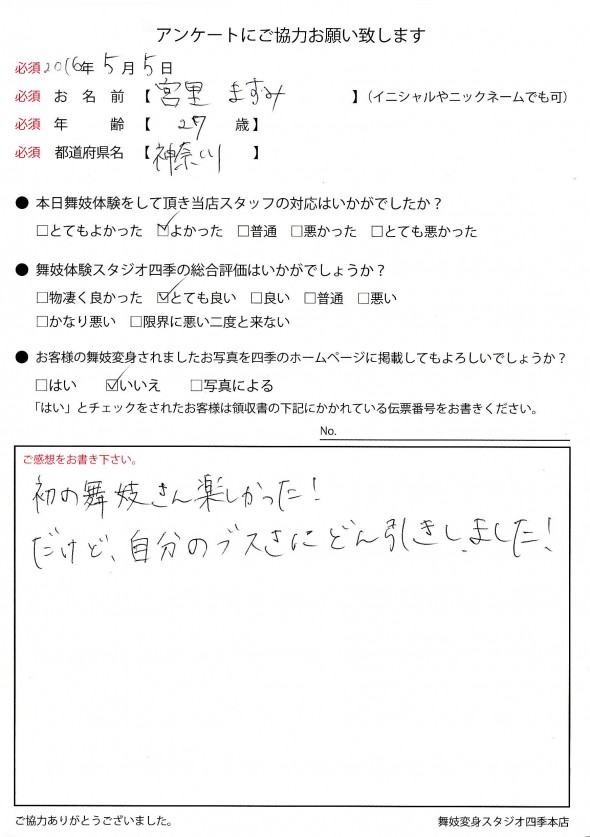 アンケートにご協力お願い致します
必須 2016年 5月 5日
必須 お名前 【 宮里 ますみ 】(イニシャルやニックネームでも可)
必須 年齢 【 27 歳】
必須 都道府県名 【 神奈川 】
● 本日舞妓体験をして頂き当店スタッフの対応はいかがでしたか?
□とてもよかった ☑よかった □普通 □悪かった □とても悪かった
● 舞妓体験スタジオ四季の総合評価はいかがでしょうか?
□物凄く良かった ☑とても良い □良い □普通 □悪い
□かなり悪い □限界に悪い二度と来ない
● お客様の舞妓変身されましたお写真を四季のホームページに掲載してもよろしいでしょうか?
□はい ☑いいえ □写真による
「はい」とチェックをされたお客様は領収書の下記にかかれている伝票番号をお書きください。
No.
ご感想をお書き下さい。
初の舞妓さん楽しかった!
だけど、自分のブスさにどん引きしました!
ご協力ありがとうございました。 舞妓変身スタジオ四季本店